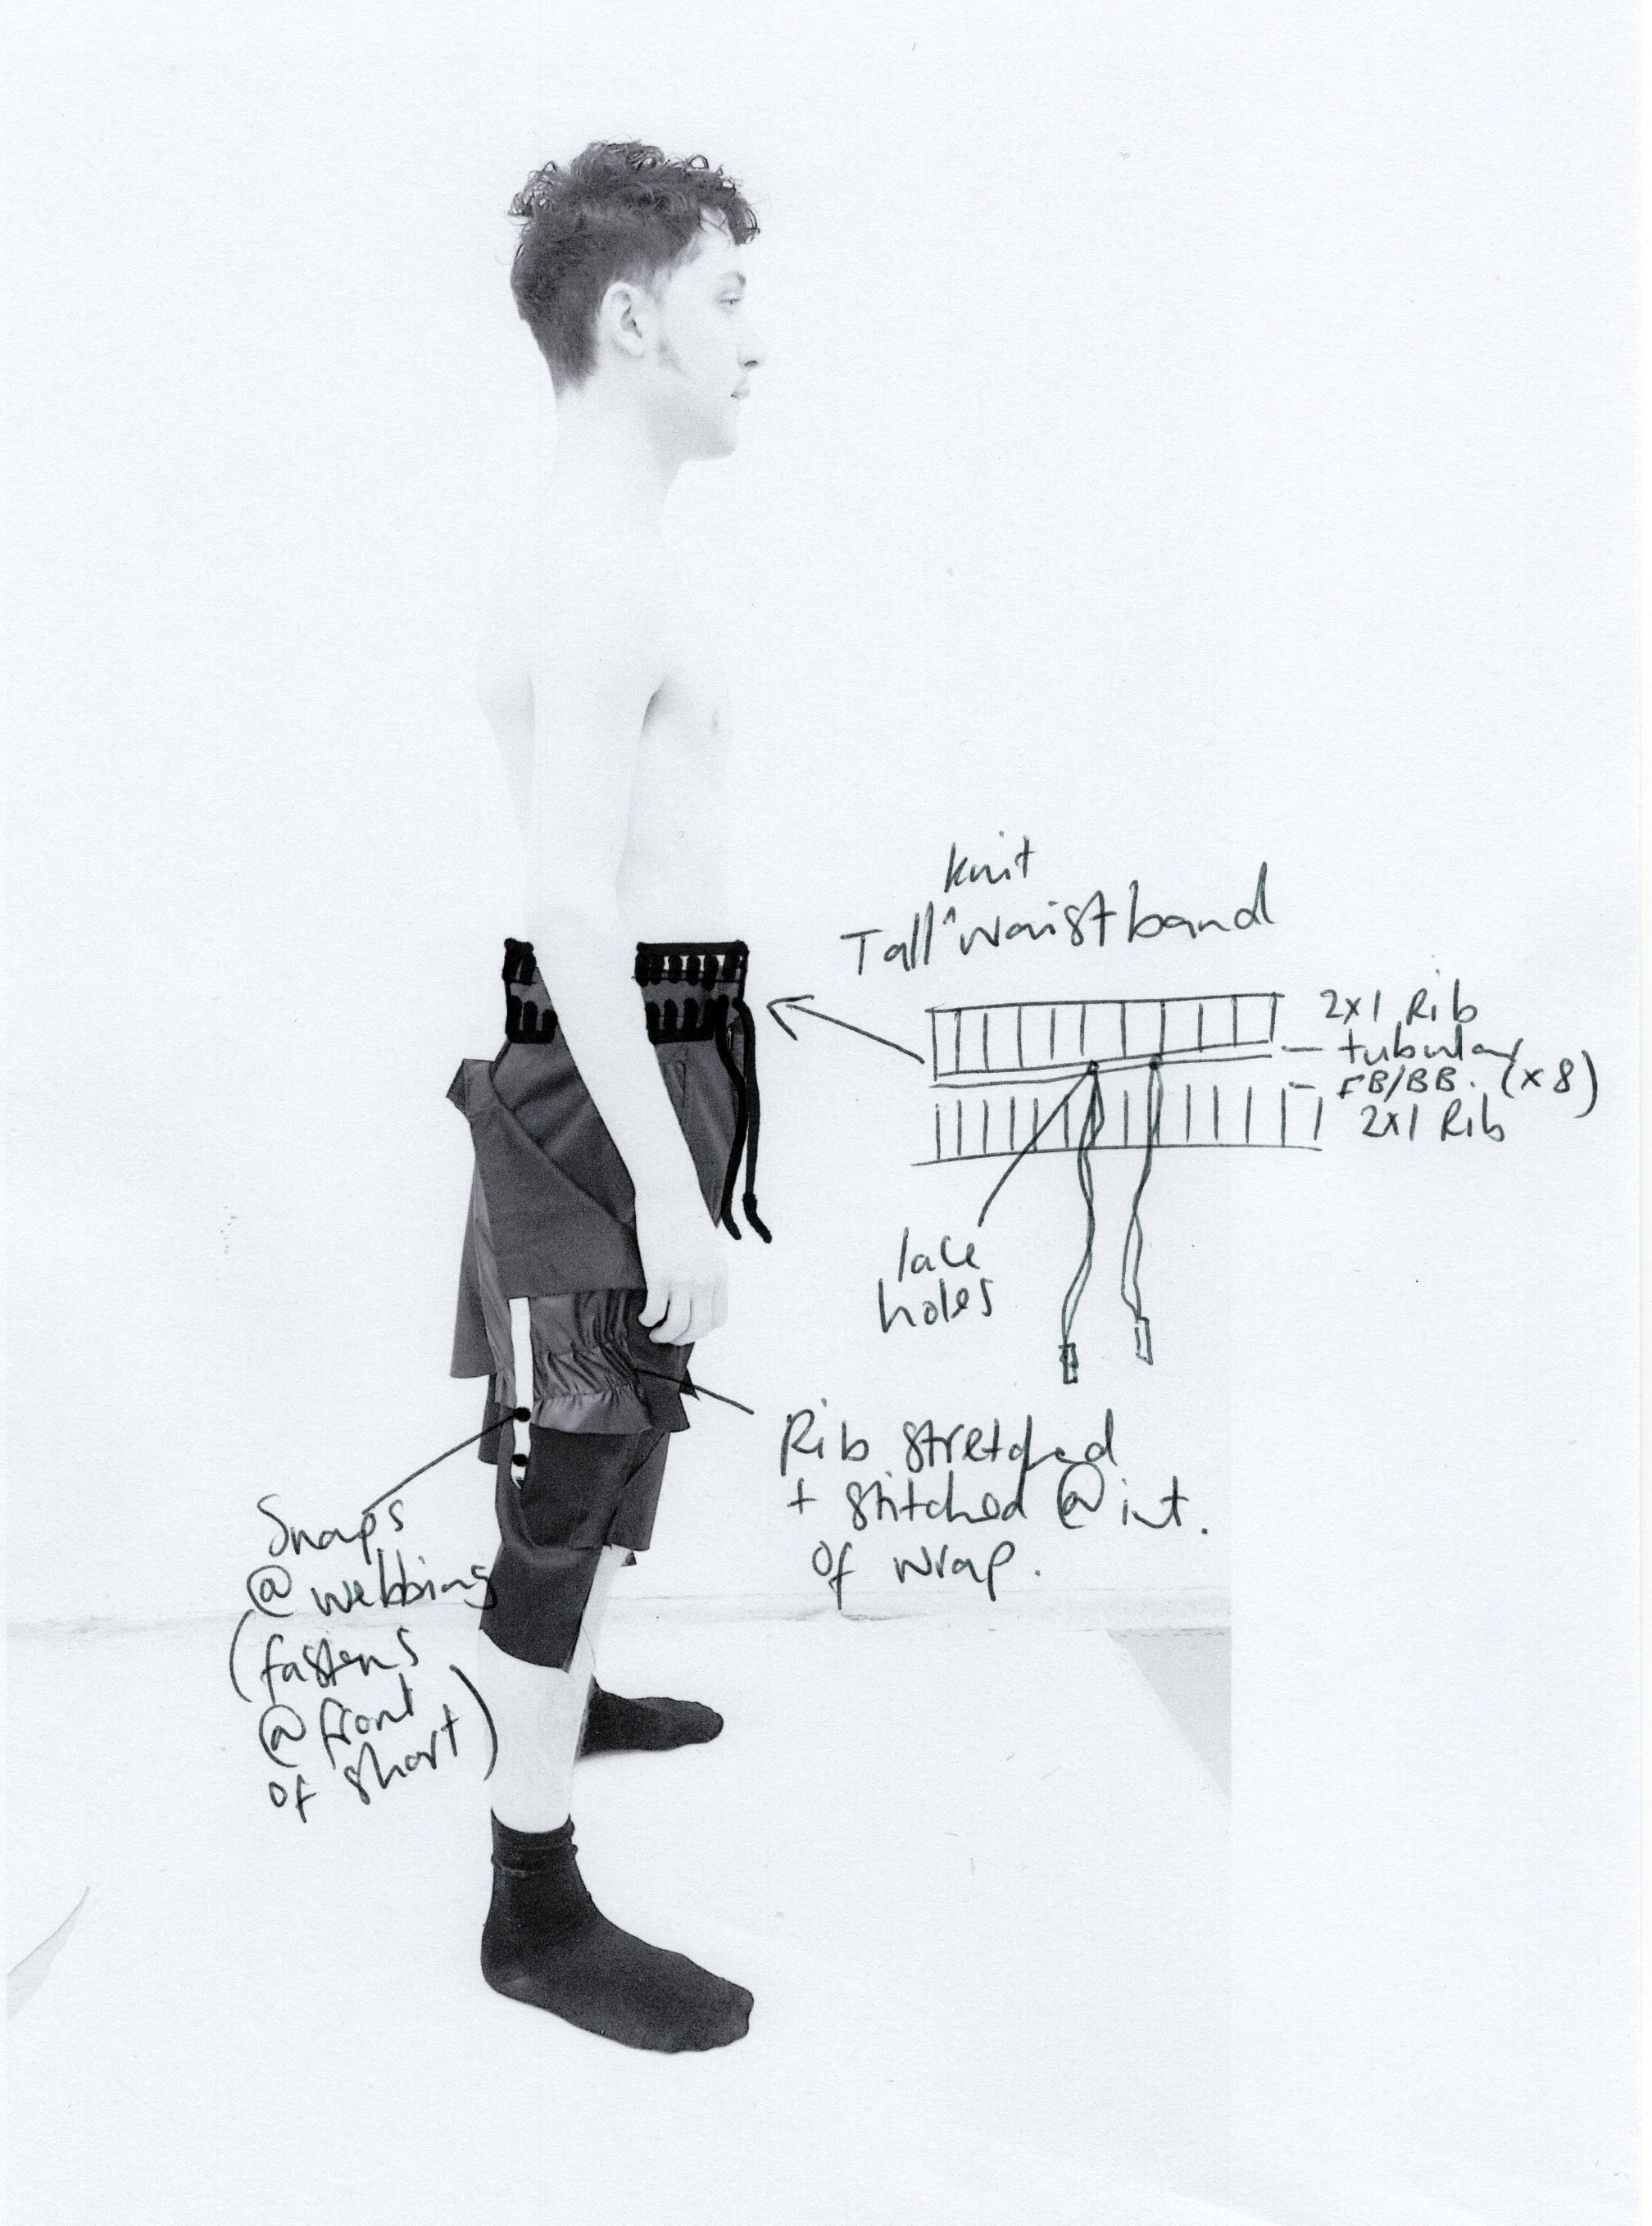 knit
Tall ^ waistband
2x1 Rib
— tubular
— FB/BB. (x8)
2x1 Rib
lace
holes
Rib stretched
+ stitched @ int.
of wrap.
Snaps
@ webbing
(fastens
@ front
of short)